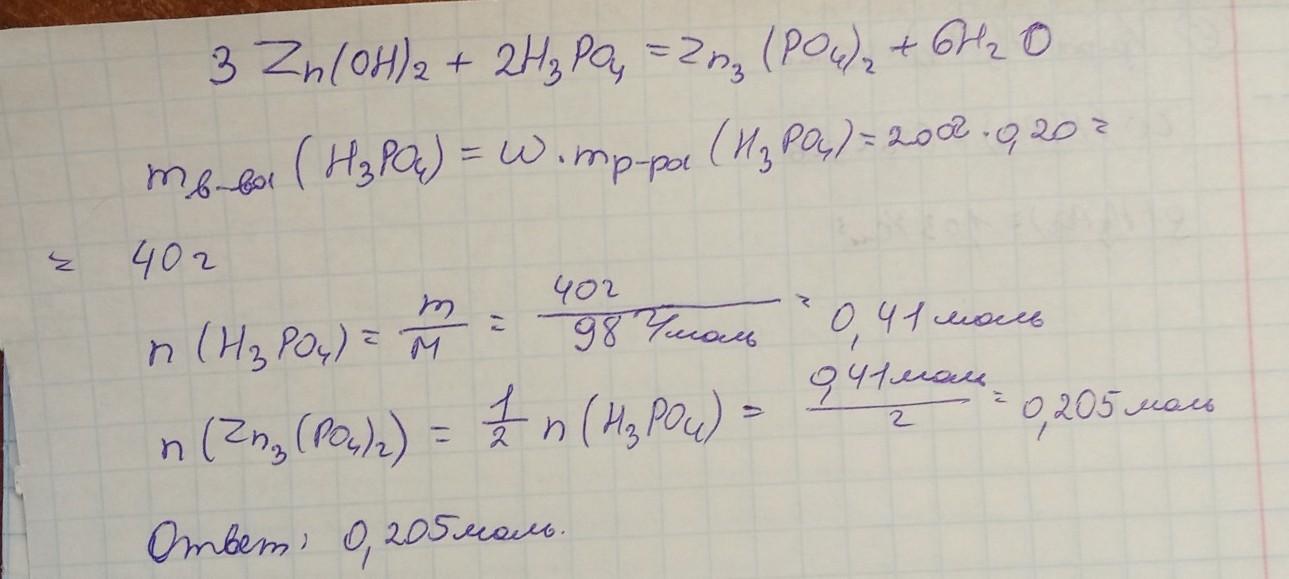 3 Zn(OH)₂ + 2H₃PO₄ = Zn₃(PO₄)₂ + 6H₂O
m в-ва (H₃PO₄) = ω · m р-ра (H₃PO₄) = 200 · 0,20 =
= 40 г
n (H₃PO₄) = m/M = 40г / 98 г/моль = 0,41 моль
n (Zn₃(PO₄)₂) = 1/2 n (H₃PO₄) = 0,41 моль / 2 = 0,205 моль
Ответ: 0,205 моль.